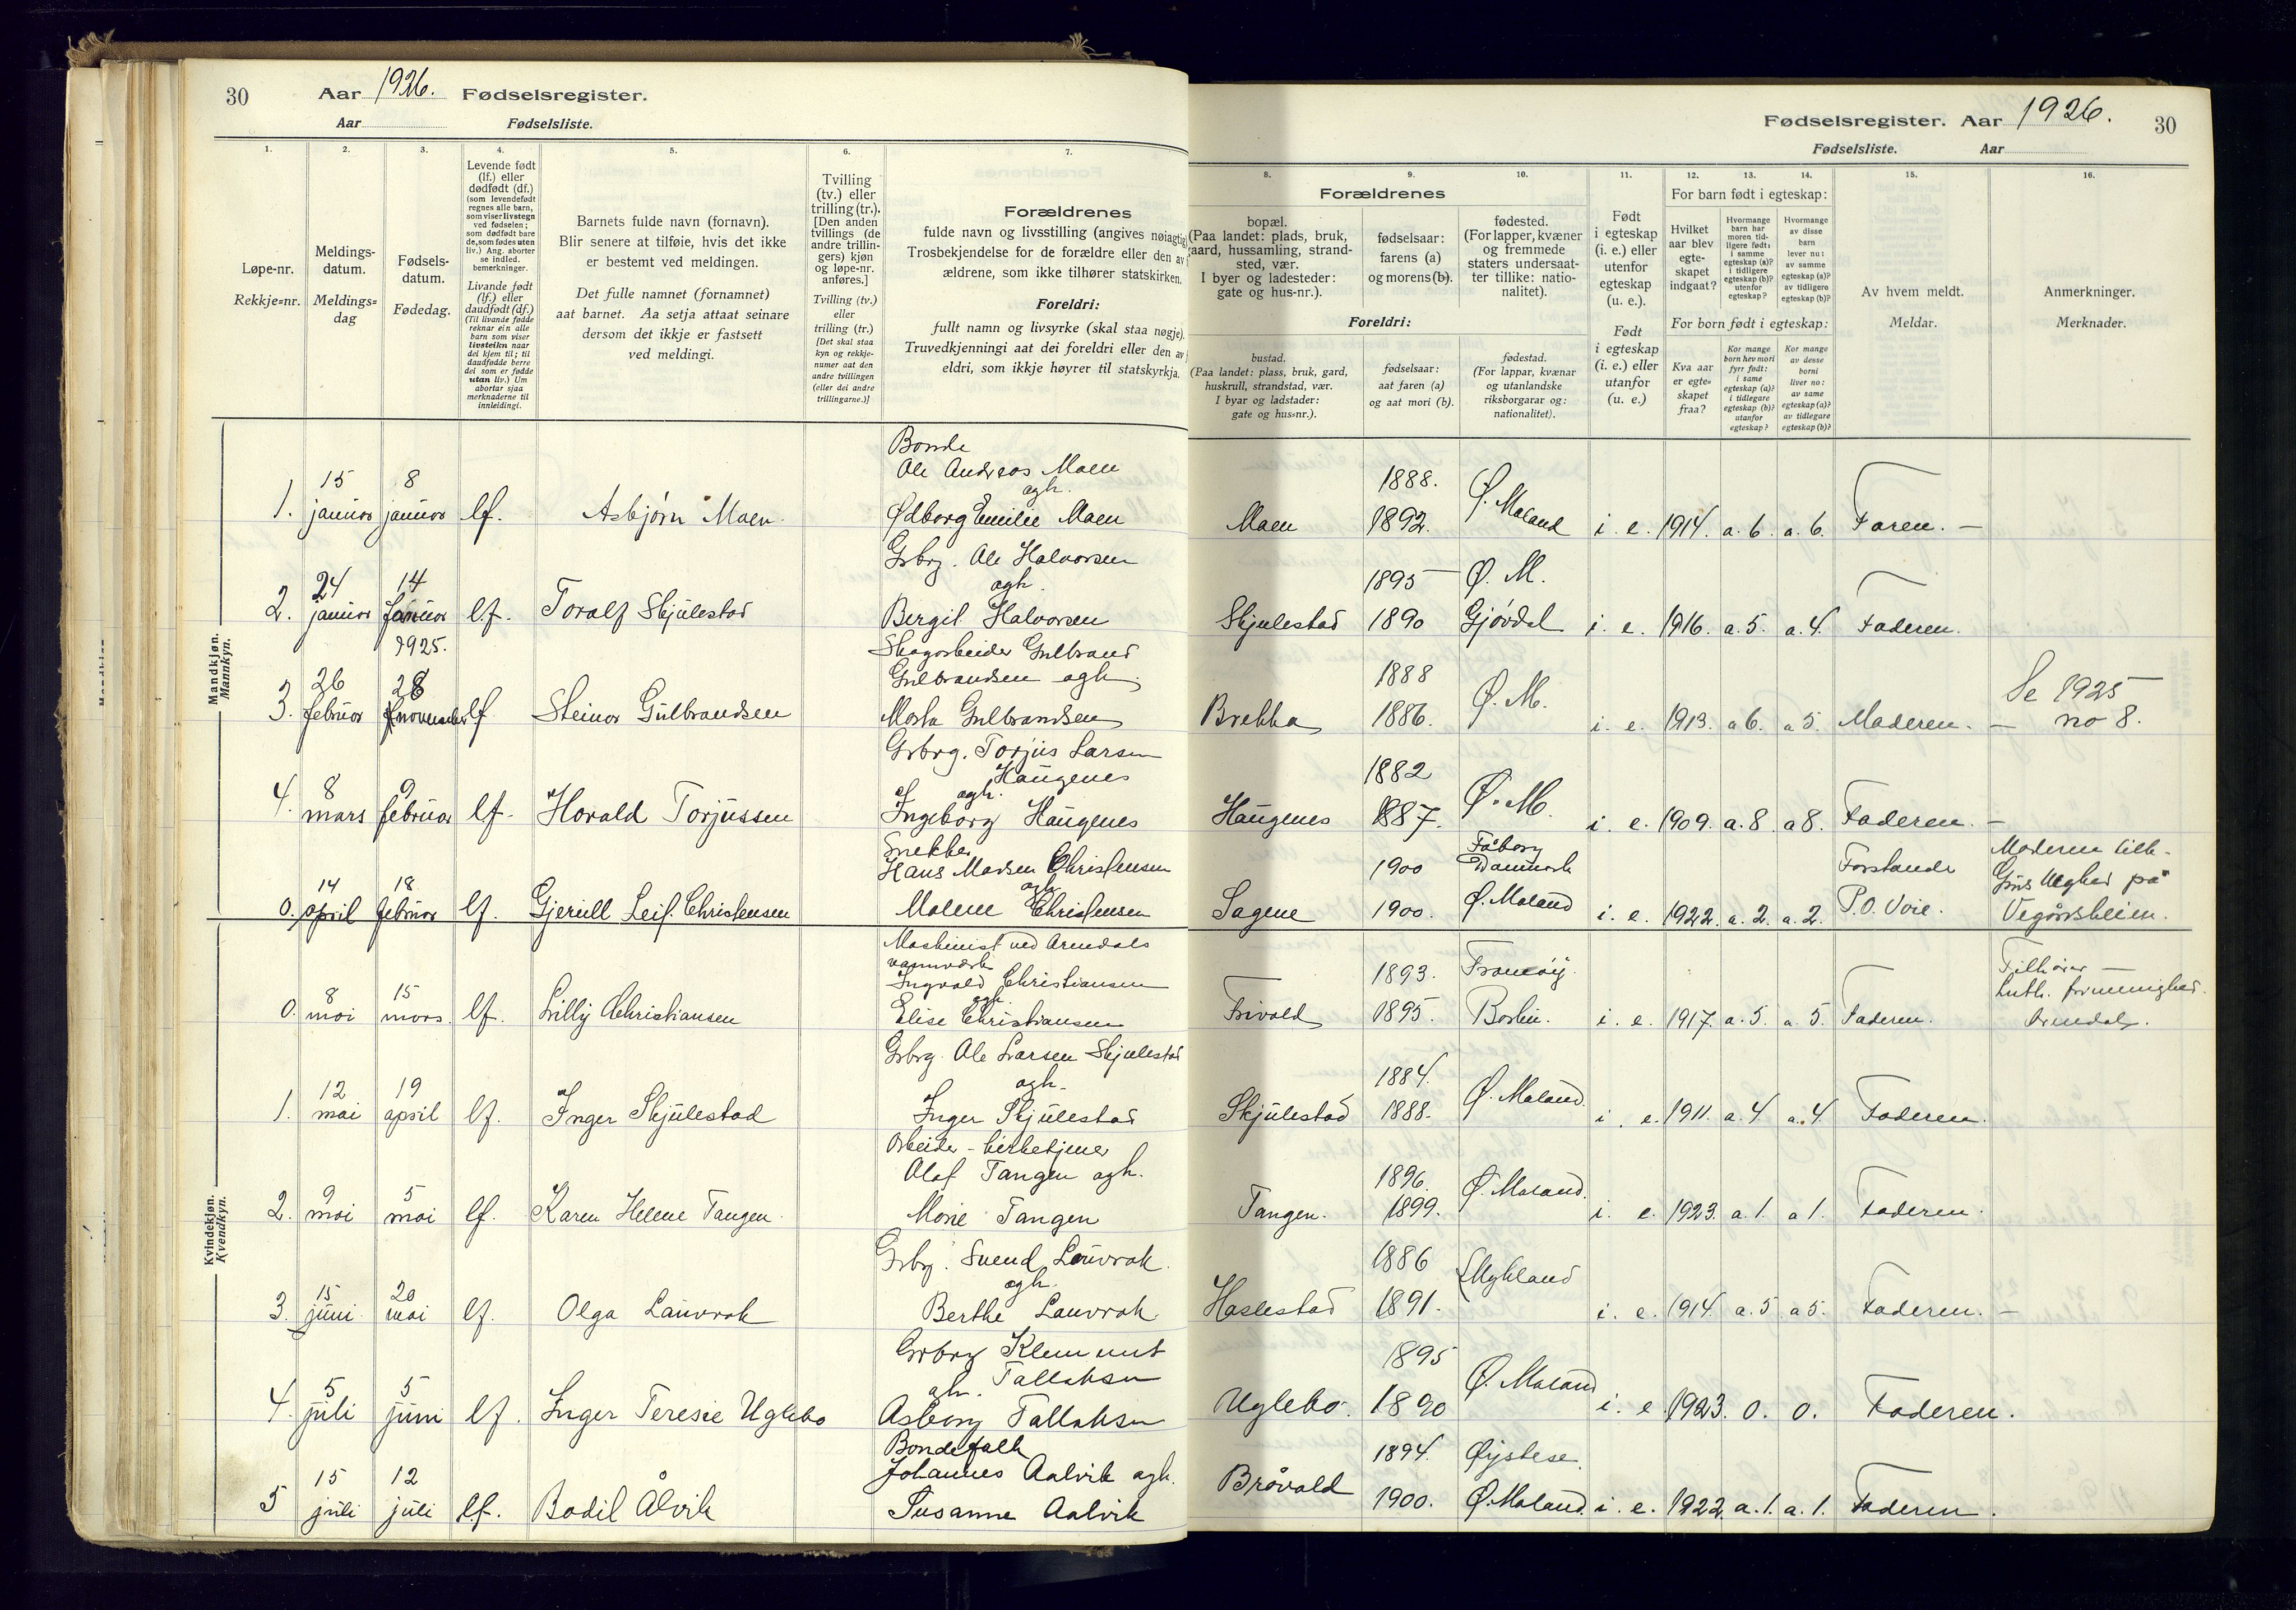 30
Aar 1926. Fødselsregister.
Aar Fødselsliste.
Fødselsregister. Aar 1926. 30
Fødselsliste. Aar
1. 2. 3. 4. 5. 6. 7. 8. 9. 10. 11. 12. 13. 14. 15. 16.
Løpe-nr.
Rekkje=nr.
Meldings-
datum.
Meldings=
dag
Fødsels-
datum.
Fødedag.
Levende født
(lf.) eller
dødfødt (df.)
(som levendefødt
regnes alle barn,
som viser livstegn
ved fødselen;
som dødfødt bare
de, som fødes uten
liv.) Ang. aborter
se indled.
bemerkninger.
Livande født
(lf.) eller
daudfødt (df.)
(Til livande fødde
reknar ein alle
barn som viser
livsteikn naar
dei kjem til; til
daudfødde berre
dei som er fødde
utan liv.) Um
abortar sjaa
merknaderne til
innleidingi.
Barnets fulde navn (fornavn).
Blir senere at tilføie, hvis det ikke
er bestemt ved meldingen.
Det fulle namnet (fornamnet)
aat barnet. Aa setja attaat seinare
dersom det ikkje er fastsett
ved meldingi.
Tvilling
(tv.) eller
trilling (tr.).
[Den anden
tvillings (de
andre trillin-
gers) kjøn
og løpe-nr.
anføres.]
Tvilling (tv.)
eller
trilling (tr.)
[Det skal staa
kyn og rekkje-
numer aat den
andre tvillingen
(eller dei andre
trillingarne.)]
Forældrenes
fulde navn og livsstilling (angives nøiagtig
Trosbekjendelse for de forældre eller den av
ældrene, som ikke tilhører statskirken.
Foreldri:
fullt namn og livsyrke (skal staa nøgje).
Truvedkjenningi aat dei foreldri eller den av
eldri, som ikkje høyrer til statskyrkja.
Forældrenes
bopæl.
(Paa landet: plads, bruk,
gaard, hussamling, strand-
sted, vær.
I byer og ladesteder:
gate og hus-nr.).
fødselsaar:
farens (a)
og morens (b).
fødested.
(For lapper, kvæner
og fremmede
staters undersaat-
ter tillike: natio-
nalitet).
Foreldri:
bustad.
(Paa landet: plass, bruk, gard,
huskrull, strandstad, vær.
I byar og ladstader:
gate og hus=nr.).
fødselsaar:
aat faren (a)
og aat mori (b).
fødestad.
(For lappar, kvænar
og utanlandske
riksborgarar og:
nationalitet).
Født
i egteskap
(i. e.) eller
utenfor
egteskap
(u. e.).
Født
i egteskap
(i. e.) eller
utanfor
(u. e.)
For barn født i egteskap:
Hvilket
aar blev
egte-
skapet
indgaat?
Hvormange
barn har
moren tid-
ligere født:
i samme
egteskap (a)?
i tidligere
egteskap (b)?
utenfor
egteskap?
Hvormange
av disse
barn
lever nu:
av samme
egteskap (a)?
av tidligere
egteskap (b)?
For born født i egteskap:
Kva aar
er egte=
skapet
fraa?
Kor mange
born hev mori
fyrr født:
i same
egteskap (a)?
i tidlegare
egteskap (b)?
utanfor
egteskap?
Kor mange
av desse
borni
liver no:
av same
egteskap (a)?
av tidlegare
egteskap (b)?
Av hvem meldt.
Meldar.
Anmerkninger.
Merknader.
Mandkjøn.
Mannkyn.
Bonde
Ole Andreas Moen
ogh.
1. 15 januar 8 januar lf. Asbjørn Moen. Ødborg Emilie Moen
Moen 1888. 1892. Ø. Moland i. e. 1914. a. 6. a. 6. Faren. —
Grbrg. Ole Halvorsen
ogh.
2. 24 januar 14 januar lf. Toralf Skjulestad Bergit Halvorsen
Skjulestad 1895 1890 Ø. M. Gjøvdal i. e. 1916. a. 5. a. 4. Faderen.
1925.
Skogarbeider Gulbrand
Gulbrandsen ogh.
3. 26 februar 28 november lf Steinar Gulbrandsen Marta Gulbrandsen
Brekka 1888 1886. Ø. M. i. e. 1913. a 6. a 5. Moderen. — Se 1925 no 8.
Grbrg. Torjus Larsen
Haugenes
ogh.
4. 8 mars 9 februar lf. Harald Torjussen Ingeborg Haugenes
Haugenes 1882 1887. Ø. M. i. e. 1909. a. 8. a 8. Faderen. —
Snekker
Hans Madsen Christensen
ogh.
0. 14 april 18 februar lf. Gjerull Leif Christensen Malene Christensen
Sagene 1900 1900. Fåborg Danmark Ø. Moland i. e. 1922. a. 2. a. 2. Forstander P.O. Voie. Moderen tilh. på Vegårsheien.
Kvindekjøn.
Kvendkyn.
Maskinist ved Arendals
vannverk
Ingvald Christiansen
ogh.
0. 8 mai 15 mars. lf. Lilly Christiansen Elise Christiansen
Frivold 1893. 1895. Tromøy. i. e. 1917. a. 5. a. 5. Faderen. Tilhører Luth. frimenighed. Arendal.
Grbrg. Ole Larsen Skjulestad
ogh.
1. 12 mai 19 april lf. Inger Skjulestad Inger Skjulestad
Skjulestad 1884. 1888. Ø. Moland. i. e. 1911. a. 4 a. 4 Faderen.
Arbeider - kirketjener
Olaf Tangen ogh.
2. 9 mai 5 mai lf. Karen Helene Tangen. Marie Tangen
Tangen. 1896. 1899. Ø. Moland. i. e. 1923. a. 1. a 1. Faderen.
Grbrg. Svend Lauvrak.
ogh.
3. 15 juni 20 mai lf. Olga Lauvrak Berthe Lauvrak.
Haslestad 1886 1891. Mykland i. e. 1914. a. 5 a 5. Faderen. —
Grbrg Klemmet
Tallaksen
ogh.
4. 5 juli 5 juni lf. Inger Teresie Uglebo Asborg Tallaksen
Uglebo. 1895 1890 Ø. Moland i. e 1923. 0. 0. Faderen.
Bondefolk
Johannes Aalvik ogh.
5 15 juli 12 juli lf. Bodil Ålvik Susanne Aalvik
Bråvold 1894. 1900. Øystese. Ø. Moland. i. e. 1922. a. 1. a. 1. Faderen.